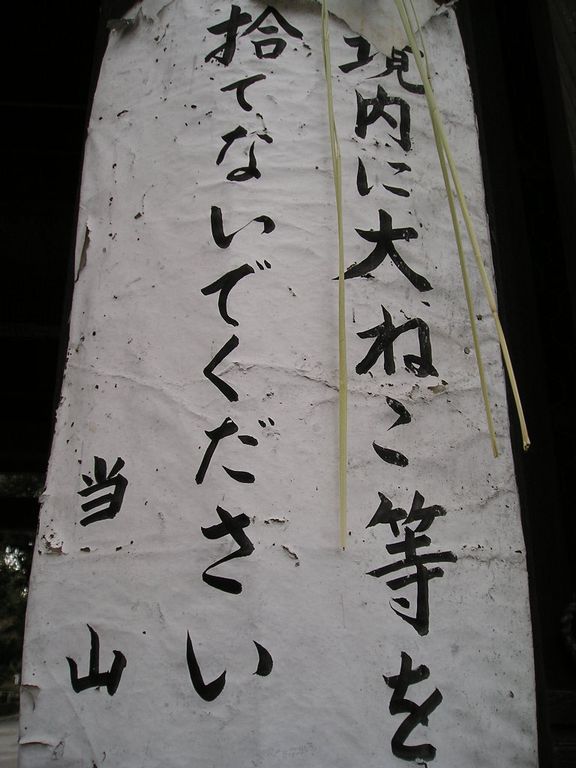 境内に大ねこ等を
拾てないでください
当山